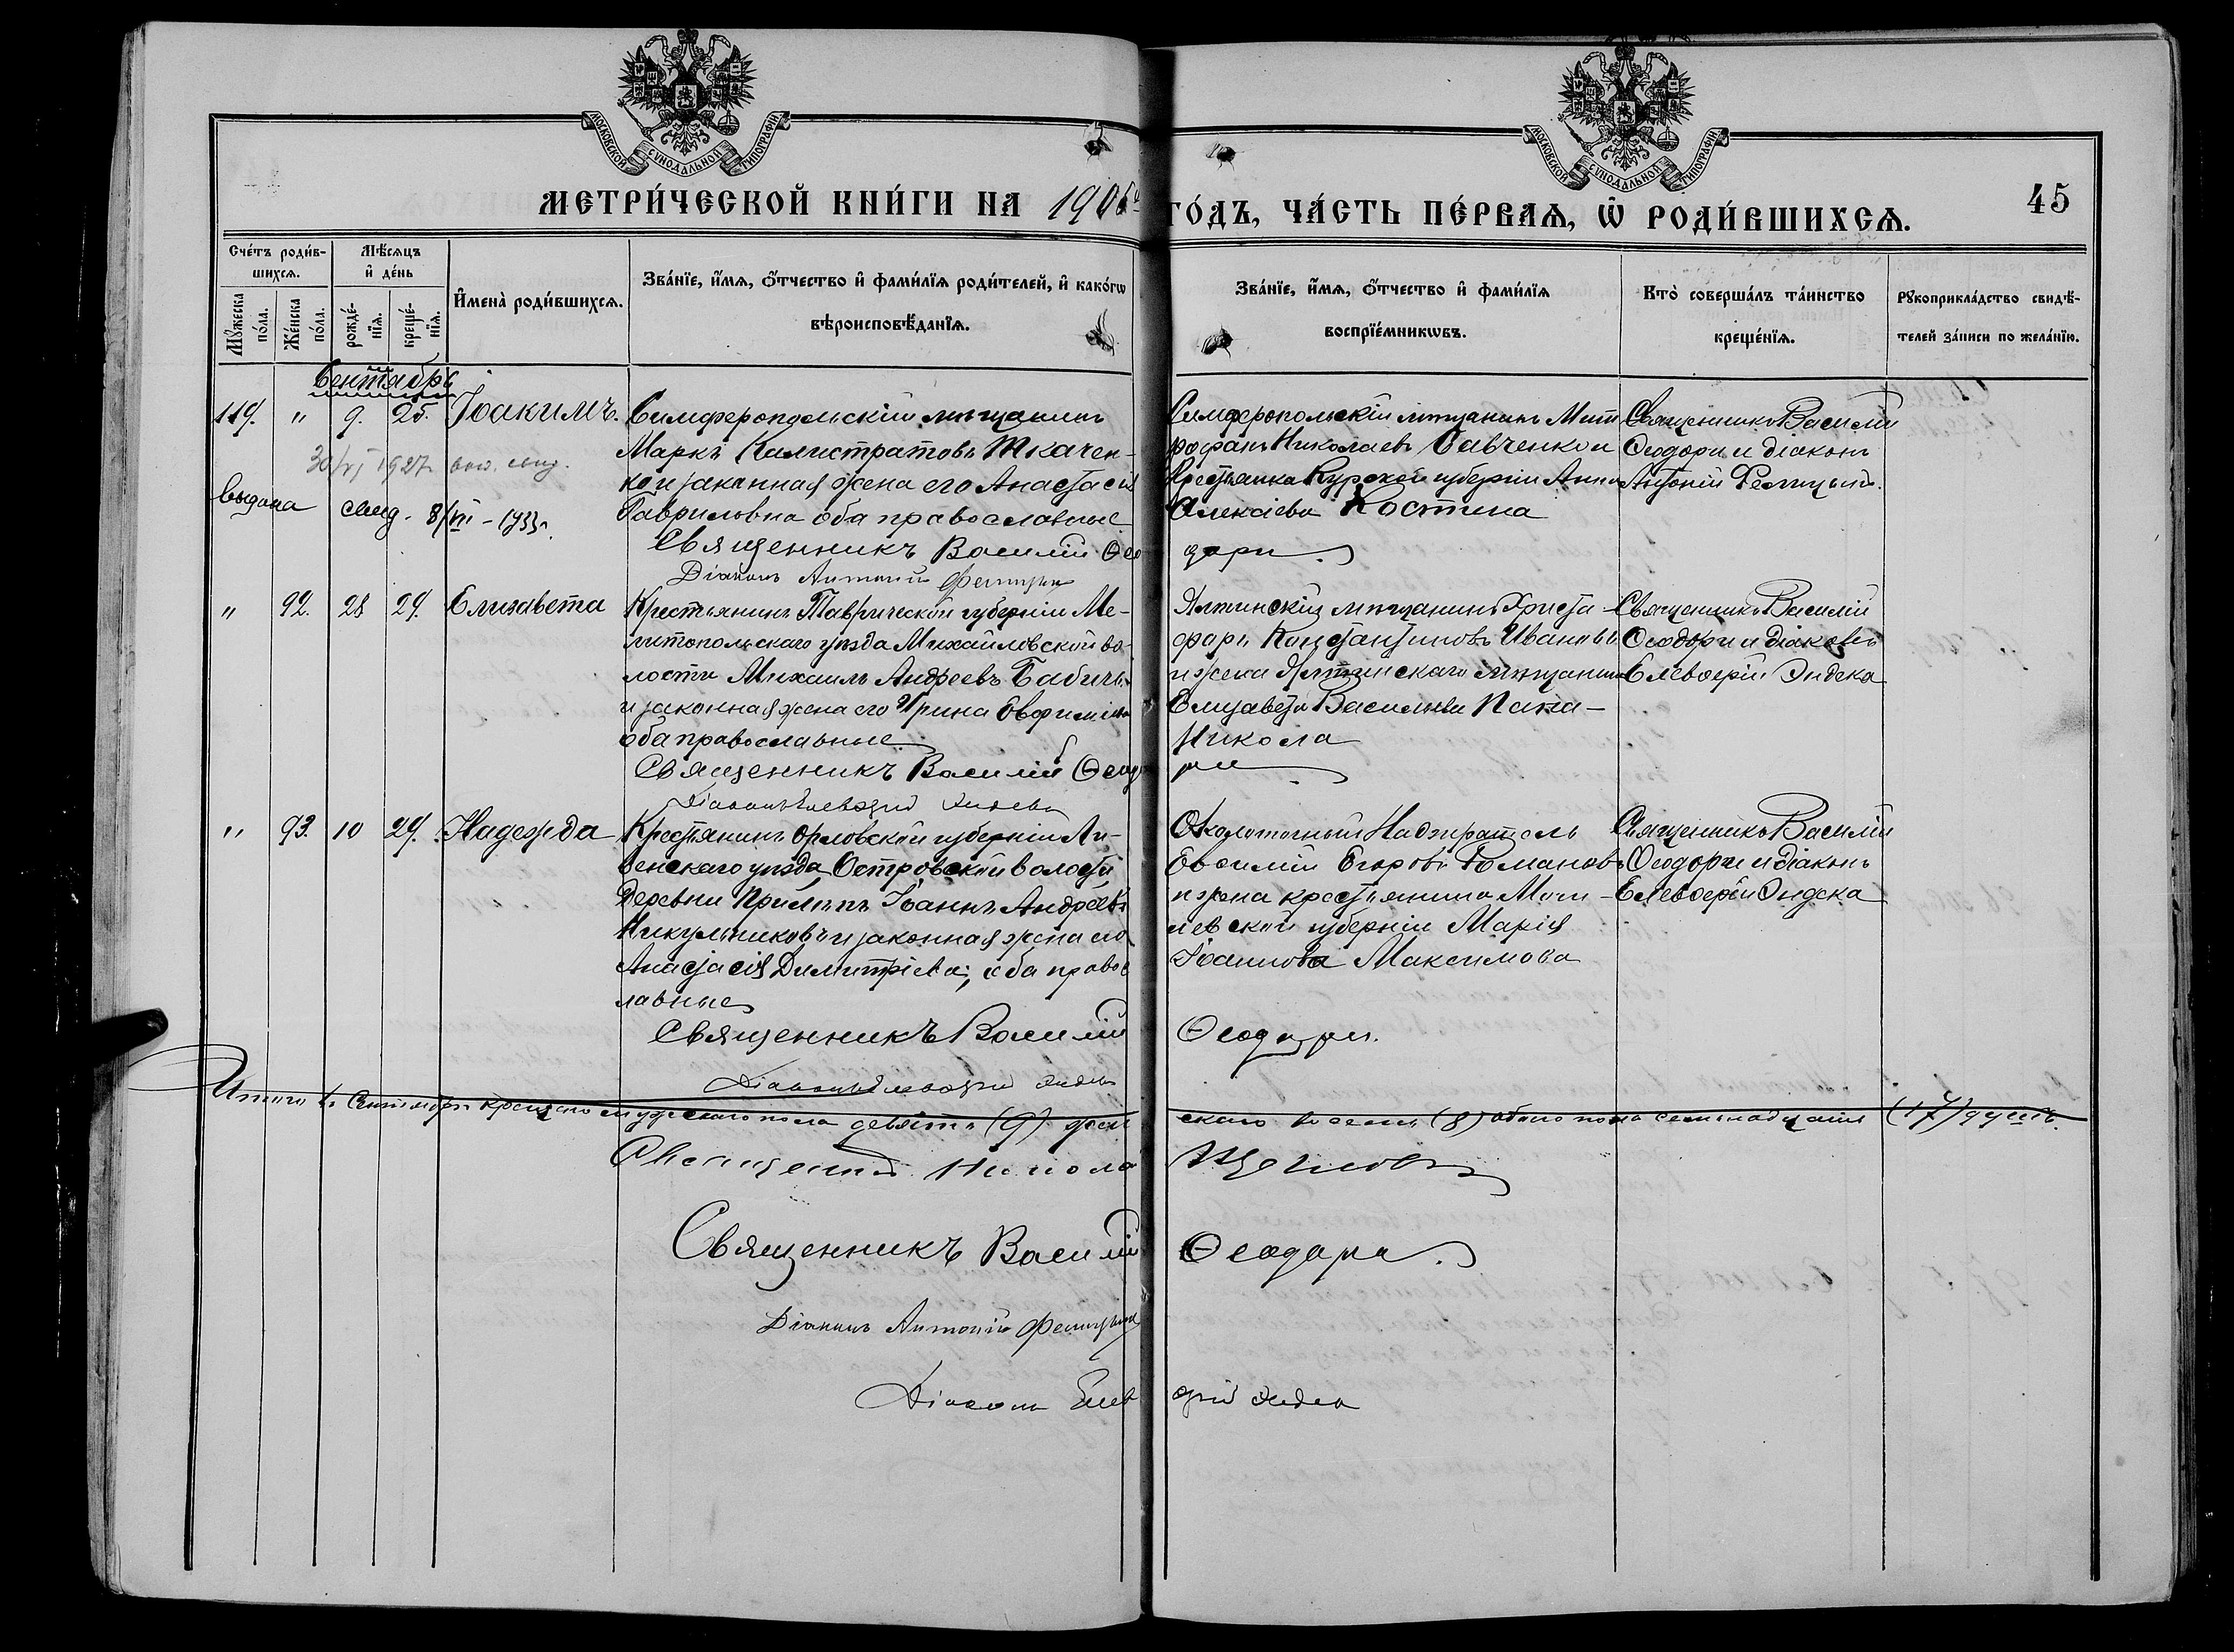 МОСКОВСКОЙ СУНОДАЛЬНОЙ ТИПОГРАФІИ
МОСКОВСКОЙ СУНОДАЛЬНОЙ ТИПОГРАФІИ
МЕТРИ́ЧЕСКОЙ КНИ́ГИ НА 1906й
ГО́ДЪ, ЧА́СТЬ ПЕ́РВАѦ, Ѡ РОДИ́ВШИХСѦ.
45
Сче́тъ роди́в-
шихсѧ.
Мѣ́сѧцъ
и҆ де́нь
Мꙋ́жеска
по́ла.
Же́нска
по́ла.
рожде́-
нїѧ.
креще́-
нїѧ.
И҆мена̀ роди́вшихсѧ.
Зва́нїе, и҆́мѧ, ѻ҆́тчество и҆ фами́лїѧ роди́телей, и҆ како́гѡ
вѣроисповѣ́данїѧ.
Зва́нїе, и҆́мѧ, ѻ҆́тчество и҆ фами́лїѧ
воспрїе́мникѡвъ.
Кто̀ соверша́лъ та́инство
креще́нїѧ.
Рꙋкоприкла́дство свидѣ́-
телей за́писи по жела́нїю.
Сентябрь
119. " 9. 25. Іоакимъ.
Симферопольскій мѣщанинъ
Маркъ Калистратовъ Ткачен-
ко и законная жена его Анастасія
Гавриловна оба православные
Священникъ Василій Ѳео
дори
Діаконъ Антоній Феницын
Симферопольскій мѣщанинъ Мит
рофанъ Николаевъ Савченко и
Крестьянка Курской губерніи Анна
Алексіева Костина
Священникъ Василій
Ѳеодори и діаконъ
Антоній
30/VI 1927 г. выд. свид.
Выдана свид. 8/VII - 1933 г.
" 92. 28 29. Елизавета
Крестьянинъ Таврической губерніи Ме-
литопольскаго уѣзда Михайловской во-
лости Михаилъ Андреевъ Бабичъ
и законная жена его Ирина Евфиміева
оба православные.
Священникъ Василій Ѳеодо
ри
Діаконъ Елевѳерій Эндека
Ялтинскій мѣщанинъ Христо-
форъ Константиновъ Ивановъ
и жена Ялтинскаго мѣщанина
Елизавета Васильева Папа-
Никола
Священникъ Василій
Ѳеодори и діаконъ
Елевѳерій Эндека
" 93. 10 29. Надежда
Крестьянинъ Орловской губерніи Ли-
венскаго уѣзда Островской волости
Деревни Прилѣпъ Іоаннъ Андреевъ
Никульниковъ и законная жена его
Анастасія Димитріева; оба правос
лавные
Священникъ Василій Ѳеодори.
Діаконъ Елевѳерій Эндека
Околоточный Надзиратель
Евсилій Егоровъ Романовъ
и жена крестьянина Моги-
левской губерніи Марія
Іоаннова Максимова
Священникъ Василій
Ѳеодори и діаконъ
Елевѳерій Эндека
Итого въ Сентябрѣ крещено мужескаго пола девять (9) жен
скаго восемь (8) обоего пола семнадцать (17) душъ.
Священникъ Никола
Священникъ Василій Ѳеодори.
Діаконъ Антоній
Діаконъ Елевѳерій Эндека